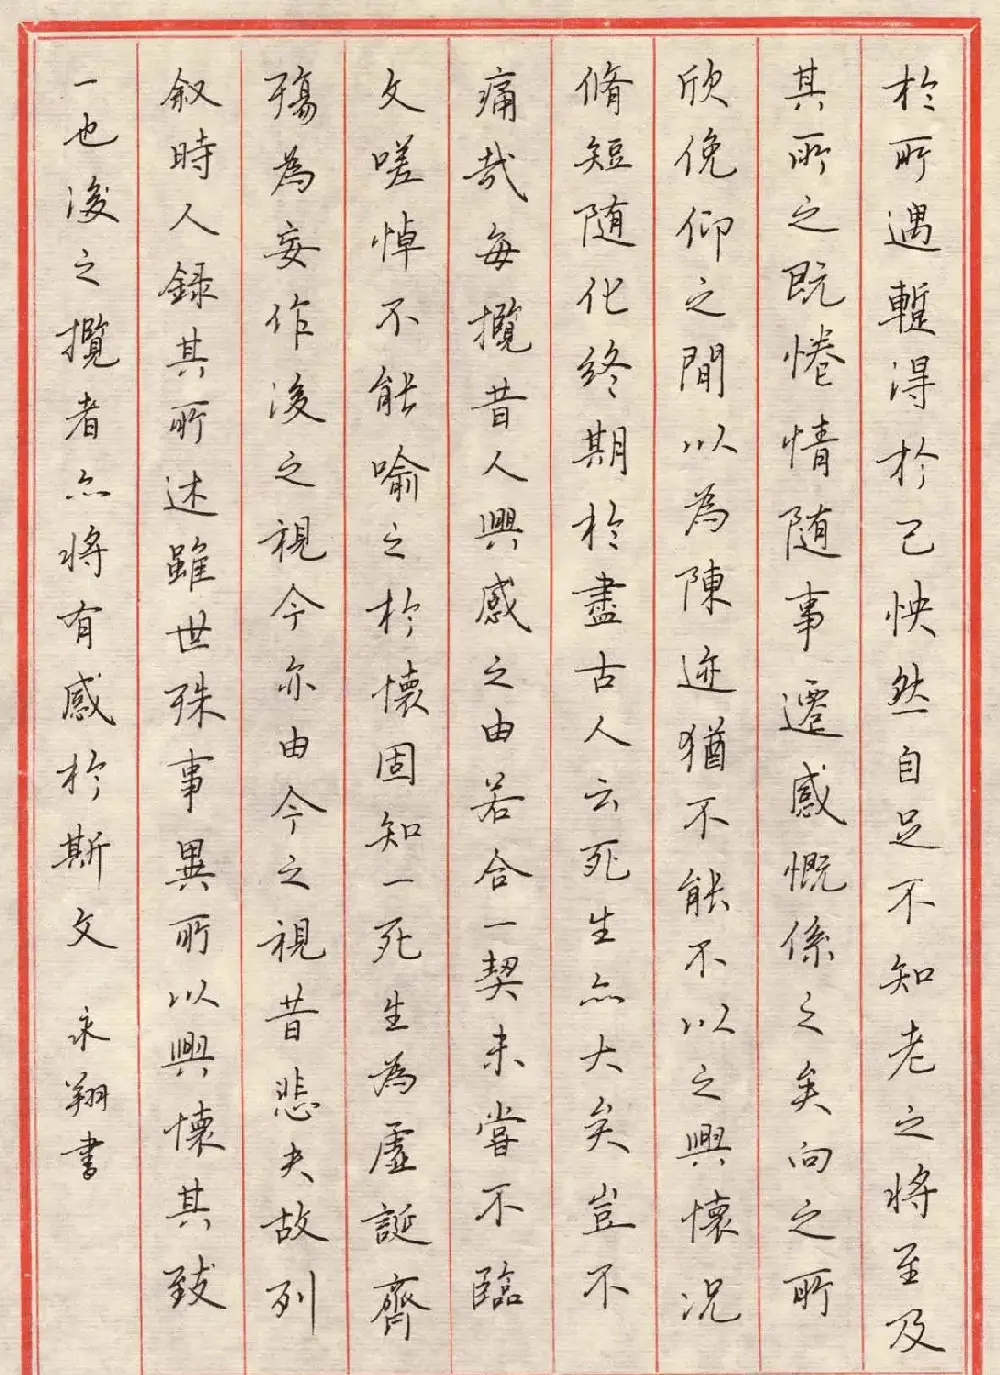 於所遇蹔得於己怏然自足不知老之将至及
其所之既惓情随事遷感慨係之矣向之所
欣俛仰之間以為陳迹猶不能不以之興懷况
脩短随化終期於盡古人云死生亦大矣豈不
痛哉每攬昔人興感之由若合一契未嘗不臨
文嗟悼不能喻之於懷固知一死生為虛誕齊
殤為妄作後之視今亦由今之視昔悲夫故列
叙時人録其所述雖世殊事異所以興懷其致
一也後之攬者亦将有感於斯文 永翔書